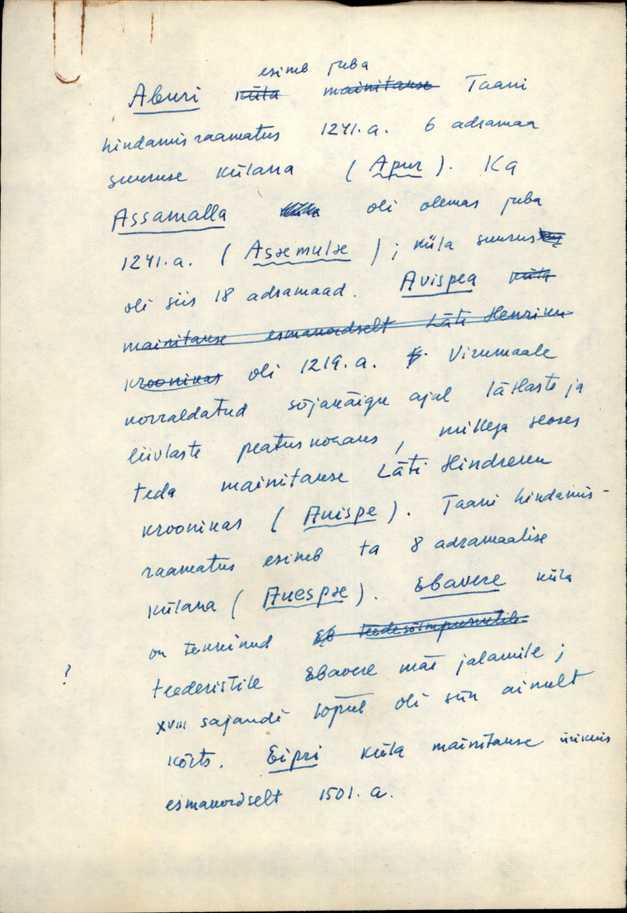 esineb juba
Aburi küla mainitakse Taani
hindamisraamatus 1241.a. 6 adramaa
suuruse külana (Apur). Ka
Assamalla küla oli olemas juba
1241.a. (Assemulse); küla suurus
oli siis 18 adramaad. Avispea küla
mainitakse esmakordselt Läti Henriku
kroonikas oli 1219.a. Virumaale
korraldatud sõjakäigu ajal lätlaste ja
liivlaste peatuskohaks, millega seoses
teda mainitakse Läti Hindreku
kroonikas (Auispe). Taani hindamis-
raamatus esineb ta 8 adramaalise
külana (Auespæ). Ebavere küla
on tekkinud Eb teedesõlmpunktile
? teederistile Ebavere mäe jalamile;
XVIII sajandi lõpul oli siin ainult
kõrts. Eipri küla mainitakse ürikuis
esmakordselt 1501.a.